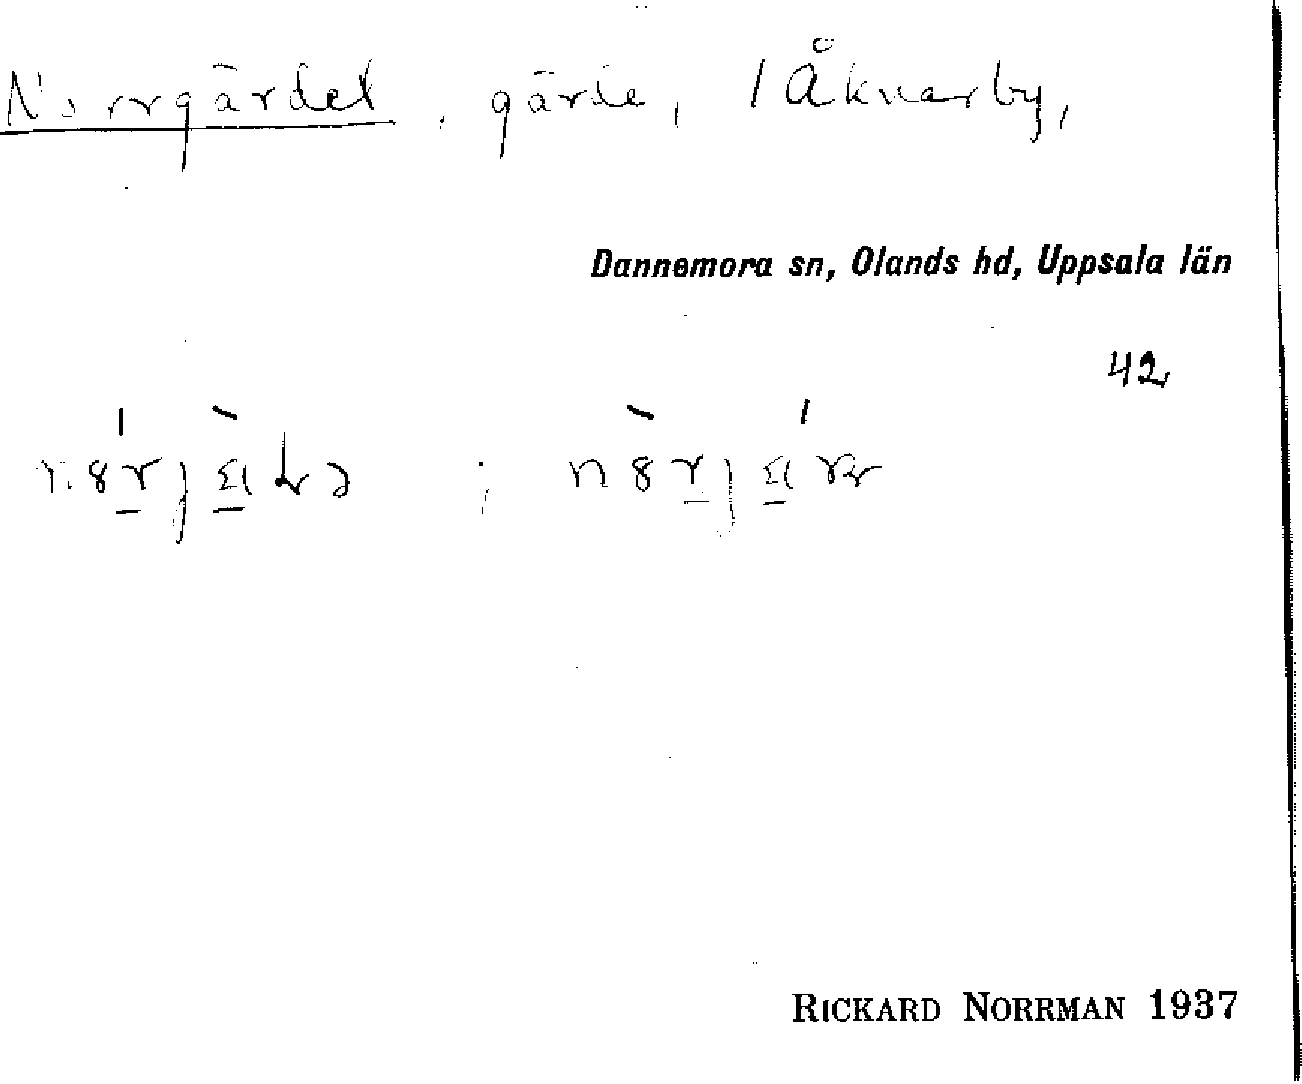 Norrgärdet, gärde, i Åknarby,
Dannemora sn, Olands hd, Uppsala län
42
RICKARD NORRMAN 1937